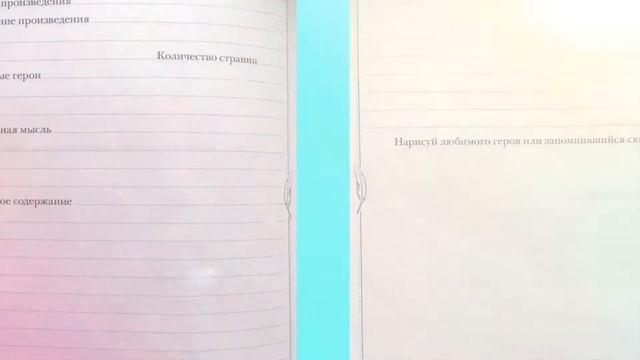 произведения
произведения
Количество страниц
герои
мысль
содержание
Нарисуй любимого героя или запомнившийся